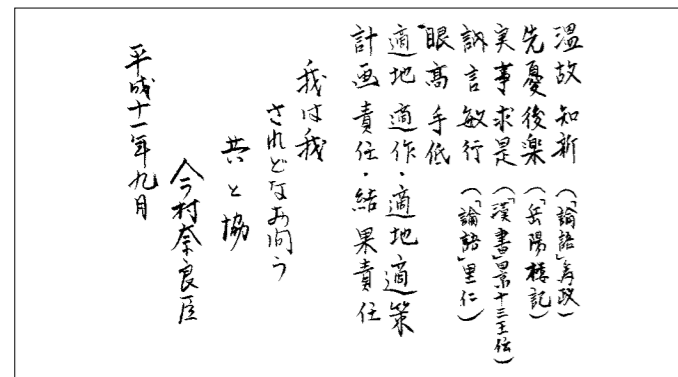 温故知新（「論語」為政）
先憂後楽（「岳陽楼記」）
実事求是（「漢書」景十三王伝）
訥言敏行（「論語」里仁）
眼高手低
適地適作・適地適策
計画責任・結果責任
我は我
されどなお向う
共と協
今村奈良臣
平成十一年九月